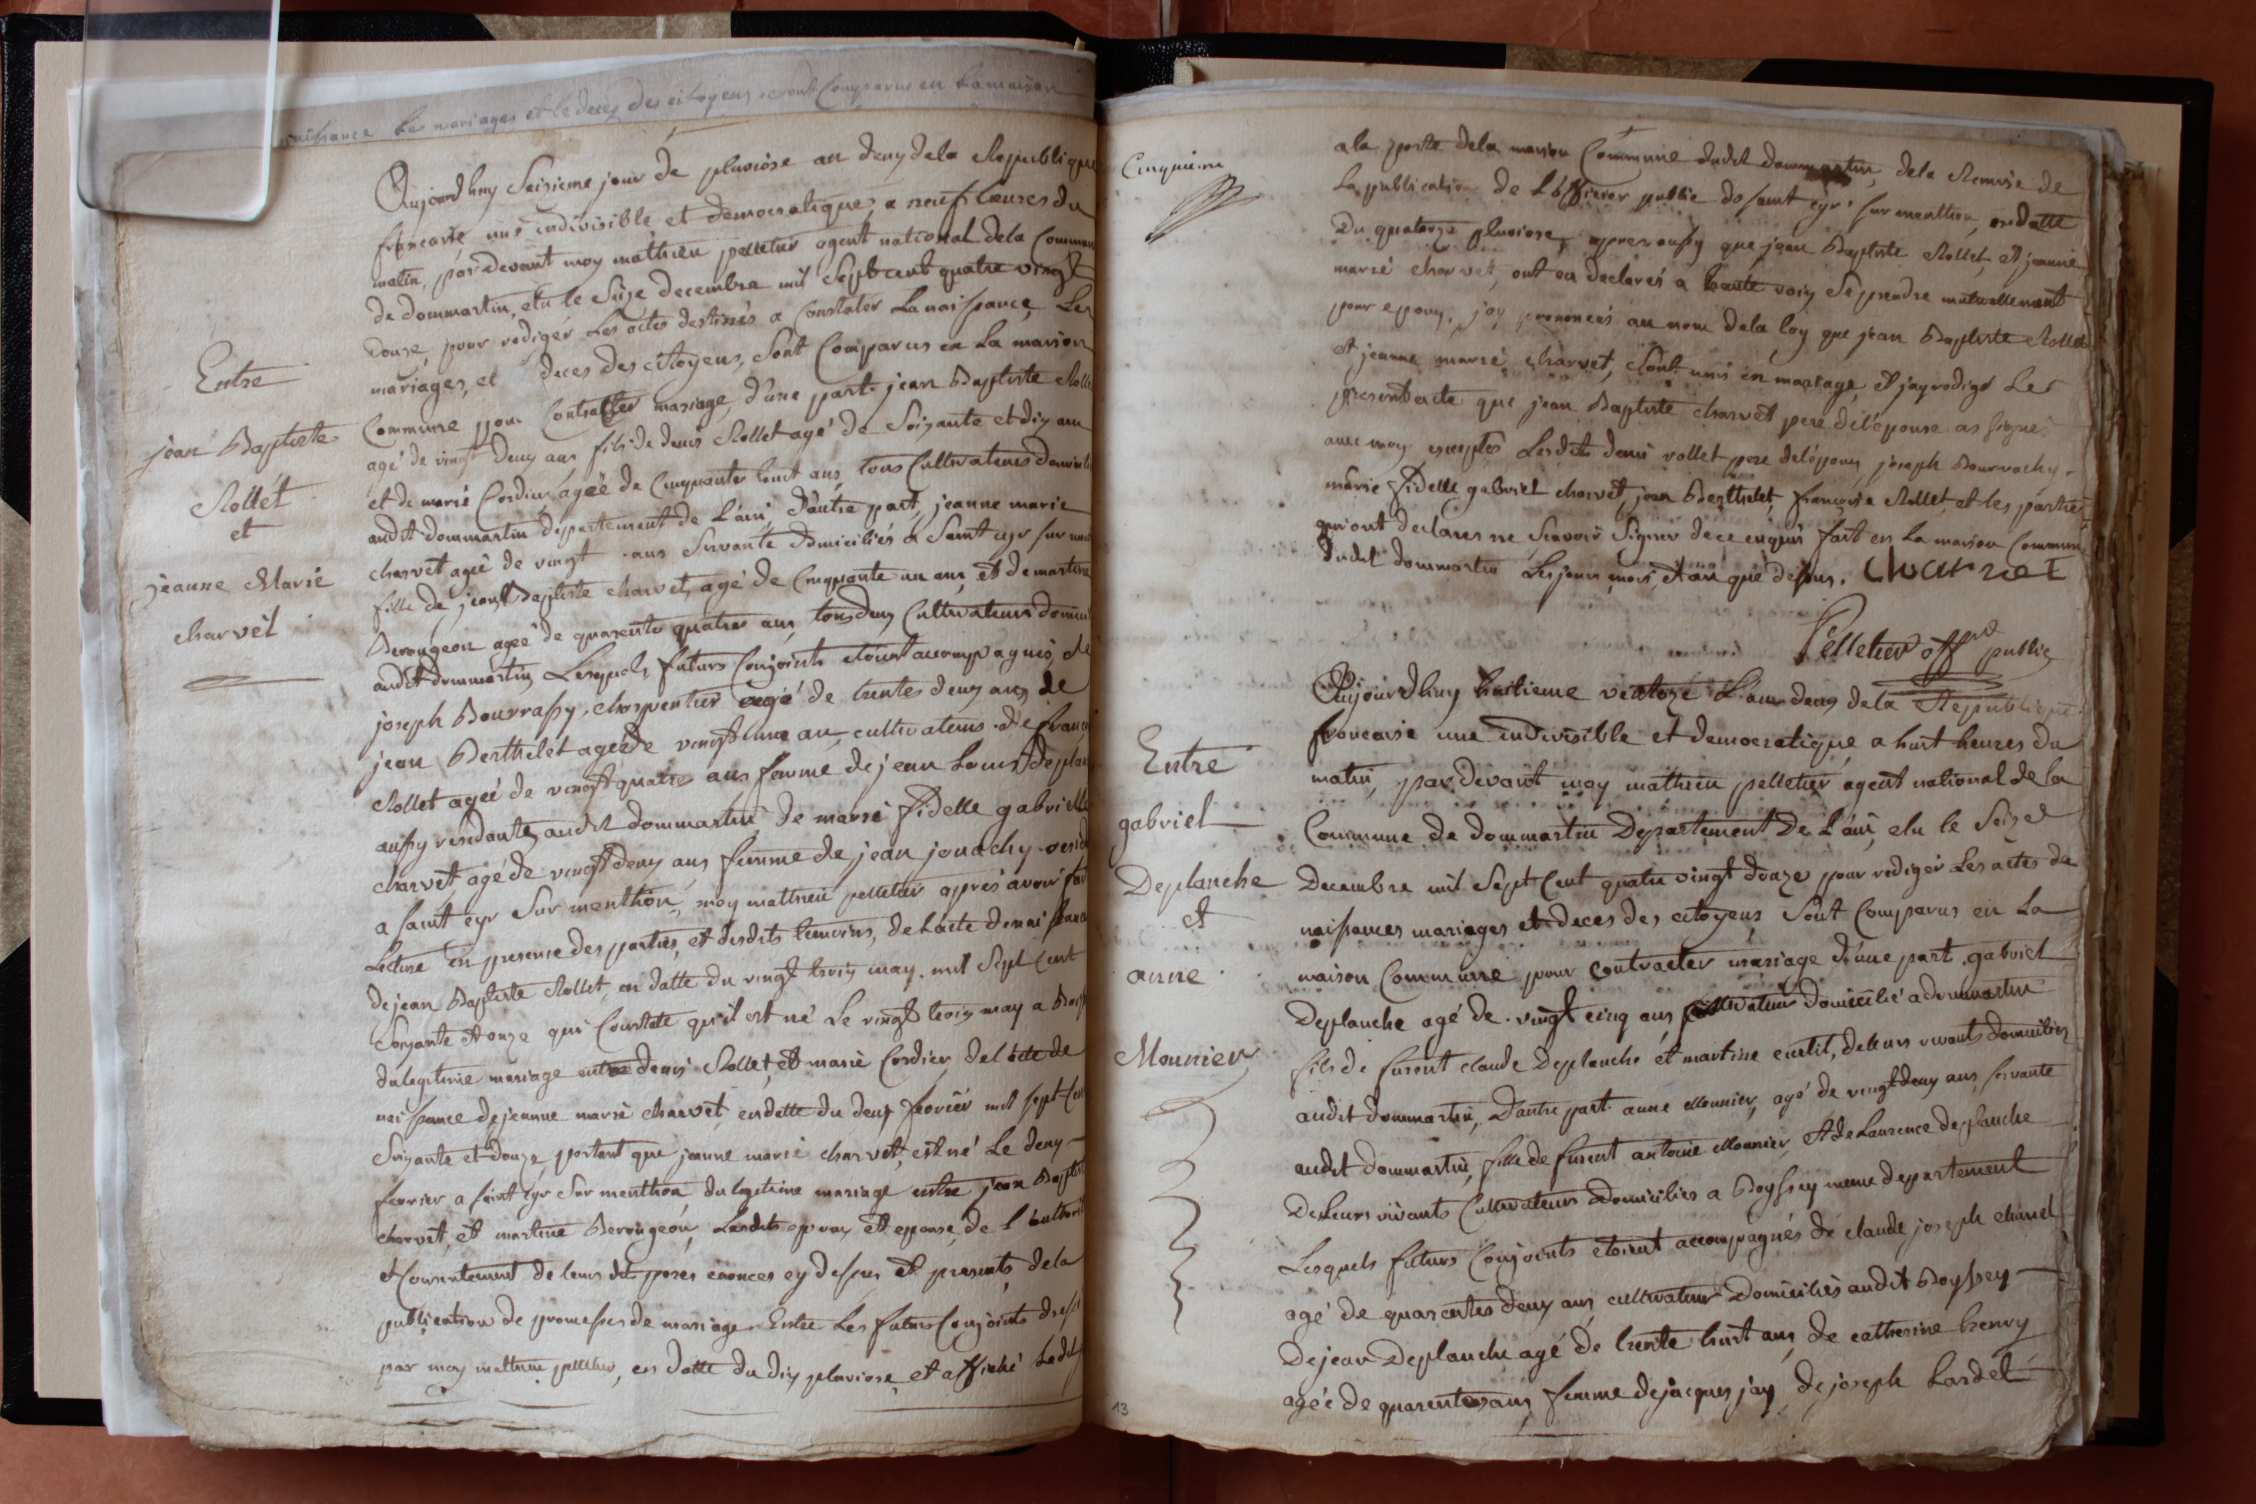 naissance les mariages et le deces des citoyens, sont Comparus en La maison
Aujourdhuy Seisieme jour de pluviose an deux dela Republique
francaise une indivisible et democratique, a neuf heures du
matin, par devant moy mathieu pelletier agent national dela Commune
de dommartin, elu le Size decembre mil Sept cent quatre vingt
Douze, pour rediger Les actes destinés a Constater La naissance, Les
mariages, et deces des citoyens, Sont Comparus en La maison
Commune pour Contracter mariage, d'une part jean Baptiste Rollet
agé de vingt deux ans fils de denis Rollet agé de Soixante et dix ans
et de marie Cordier, agée de Cinquante huit ans, tous Cultivateurs domiciliés
audit dommartin departement de L'ain, D'autre part, jeanne marie
charvet agée de vingt ans Servante domiciliés a Saint cyr sur menthon
fille de jean Baptiste charvet, agé de Cinquante un ans et de martine
Berougeon agée de quarente quatre ans, tous deux Cultivateurs domiciliés
audit dommartin Lesquels futurs Conjoints etoient accompagnés, de
joseph Bourrassy, charpentier agé de trentes deux ans, de
jean Berthelet agée de vingt un ans, cultivateurs, de francoise
Rollet agée de vingt quatre ans femme de jean Louis Deplanche
aussy residants audit dommartin, de marie fidelle gabrielle
charvet, agé de vingt deux ans, femme de jean jouachy resid
a saint cyr Sur menthon, moy mathieu pelletier apres avoir fait
Lecture en presence des parties, et desdits temoins, de Lacte de naissance
de jean Baptiste Rollet, en datte du vingt trois may, mil Sept Cent
Soixante Et onze qui Constate qu'il est né Le vingt trois may a
du legitime mariage entre denis Rollet, et marie Cordier, de l'acte de
naissance de jeanne marie charvet, en datte du deux fevrier mil sept Cent
Soixante et douze portant que jeanne marie charvet, est né Le deux
fevrier a saint Cyr Sur menthon, du legitime mariage entre jean Baptiste
charvet, et martine Berougeon, Lesdits epoux et epouse, de l'authorité
et Consentement de leurs dits peres enonces cy dessus et presents, dela
publication de promesses de mariage Entre Les futurs Conjoints dressé
par moy mathieu pelletier, en datte du dix pluviose, et affiché Ledit
Entre
jean Baptiste
Rollet
et
jeanne Marie
charvet
Cinquieme
a la porte dela maison Commune dudit dommartin, dela Remise de
La publication de L'officier public de saint cyr sur menthon, en datte
Du quatorze pluviose, apres aussy que jean Baptiste Rollet, Et jeanne
marie charvet, ont eu declarés a haute voix Se prendre mutuellement
pour epoux, j'ay prononcés au nom dela loy que jean Baptiste Rollet
et jeanne marie charvet, Sont unis en mariage, Et jay redigé Les
present acte que jean Baptiste charvet pere de l'epouse as signé
avec moy exceptés Lesdits denis rollet pere de l'epoux joseph
marie fidelle gabriel charvet, jean Berthelet, francoise Rollet, et les parties
qui ont declarés ne Scavoir Signer de ce enquis fait en La maison Commune
dudit dommartin Les jours, mois, et an que dessus. Charvet
Pelletier off public
Aujourdhuy huitieme ventoze L'an deux dela Republique
francaise une indivisible et democratique a huit heures du
matin, par devant moy mathieu pelletier agent national de la
Commune de dommartin Departement De L'ain, elu le Seize
Decembre mil Sept Cent quatre vingt douze pour rediger Les actes de
naissances mariages et deces des citoyens, Sont Comparus en La
maison Commune pour contracter mariage d'une part gabriel
Deplanche agé de vingt cinq ans, Cultivateur Domicilié a dommartin
fils de furent claude Deplanche et martine curtil, de leurs vivants domiciliés
audit dommartin, D'autre part anne Mounier, agé de vingt deux ans servante
audit dommartin, fille de furent antoine Mounier, Et de Laurence deplanche
De leurs vivants Cultivateurs Domiciliés a Boyssey meme departement
Lesquels futurs Conjoints etoient accompagnés de claude joseph chanel
agé de quarentes deux ans cultivateur Domiciliés audit Boyssey
De jean Deplanche agé de trente huit ans, de catherine henry
agée de quarentes ans, femme de jacques jay, de joseph Lardet
Entre
gabriel
Deplanche
et
anne
Mounier
13